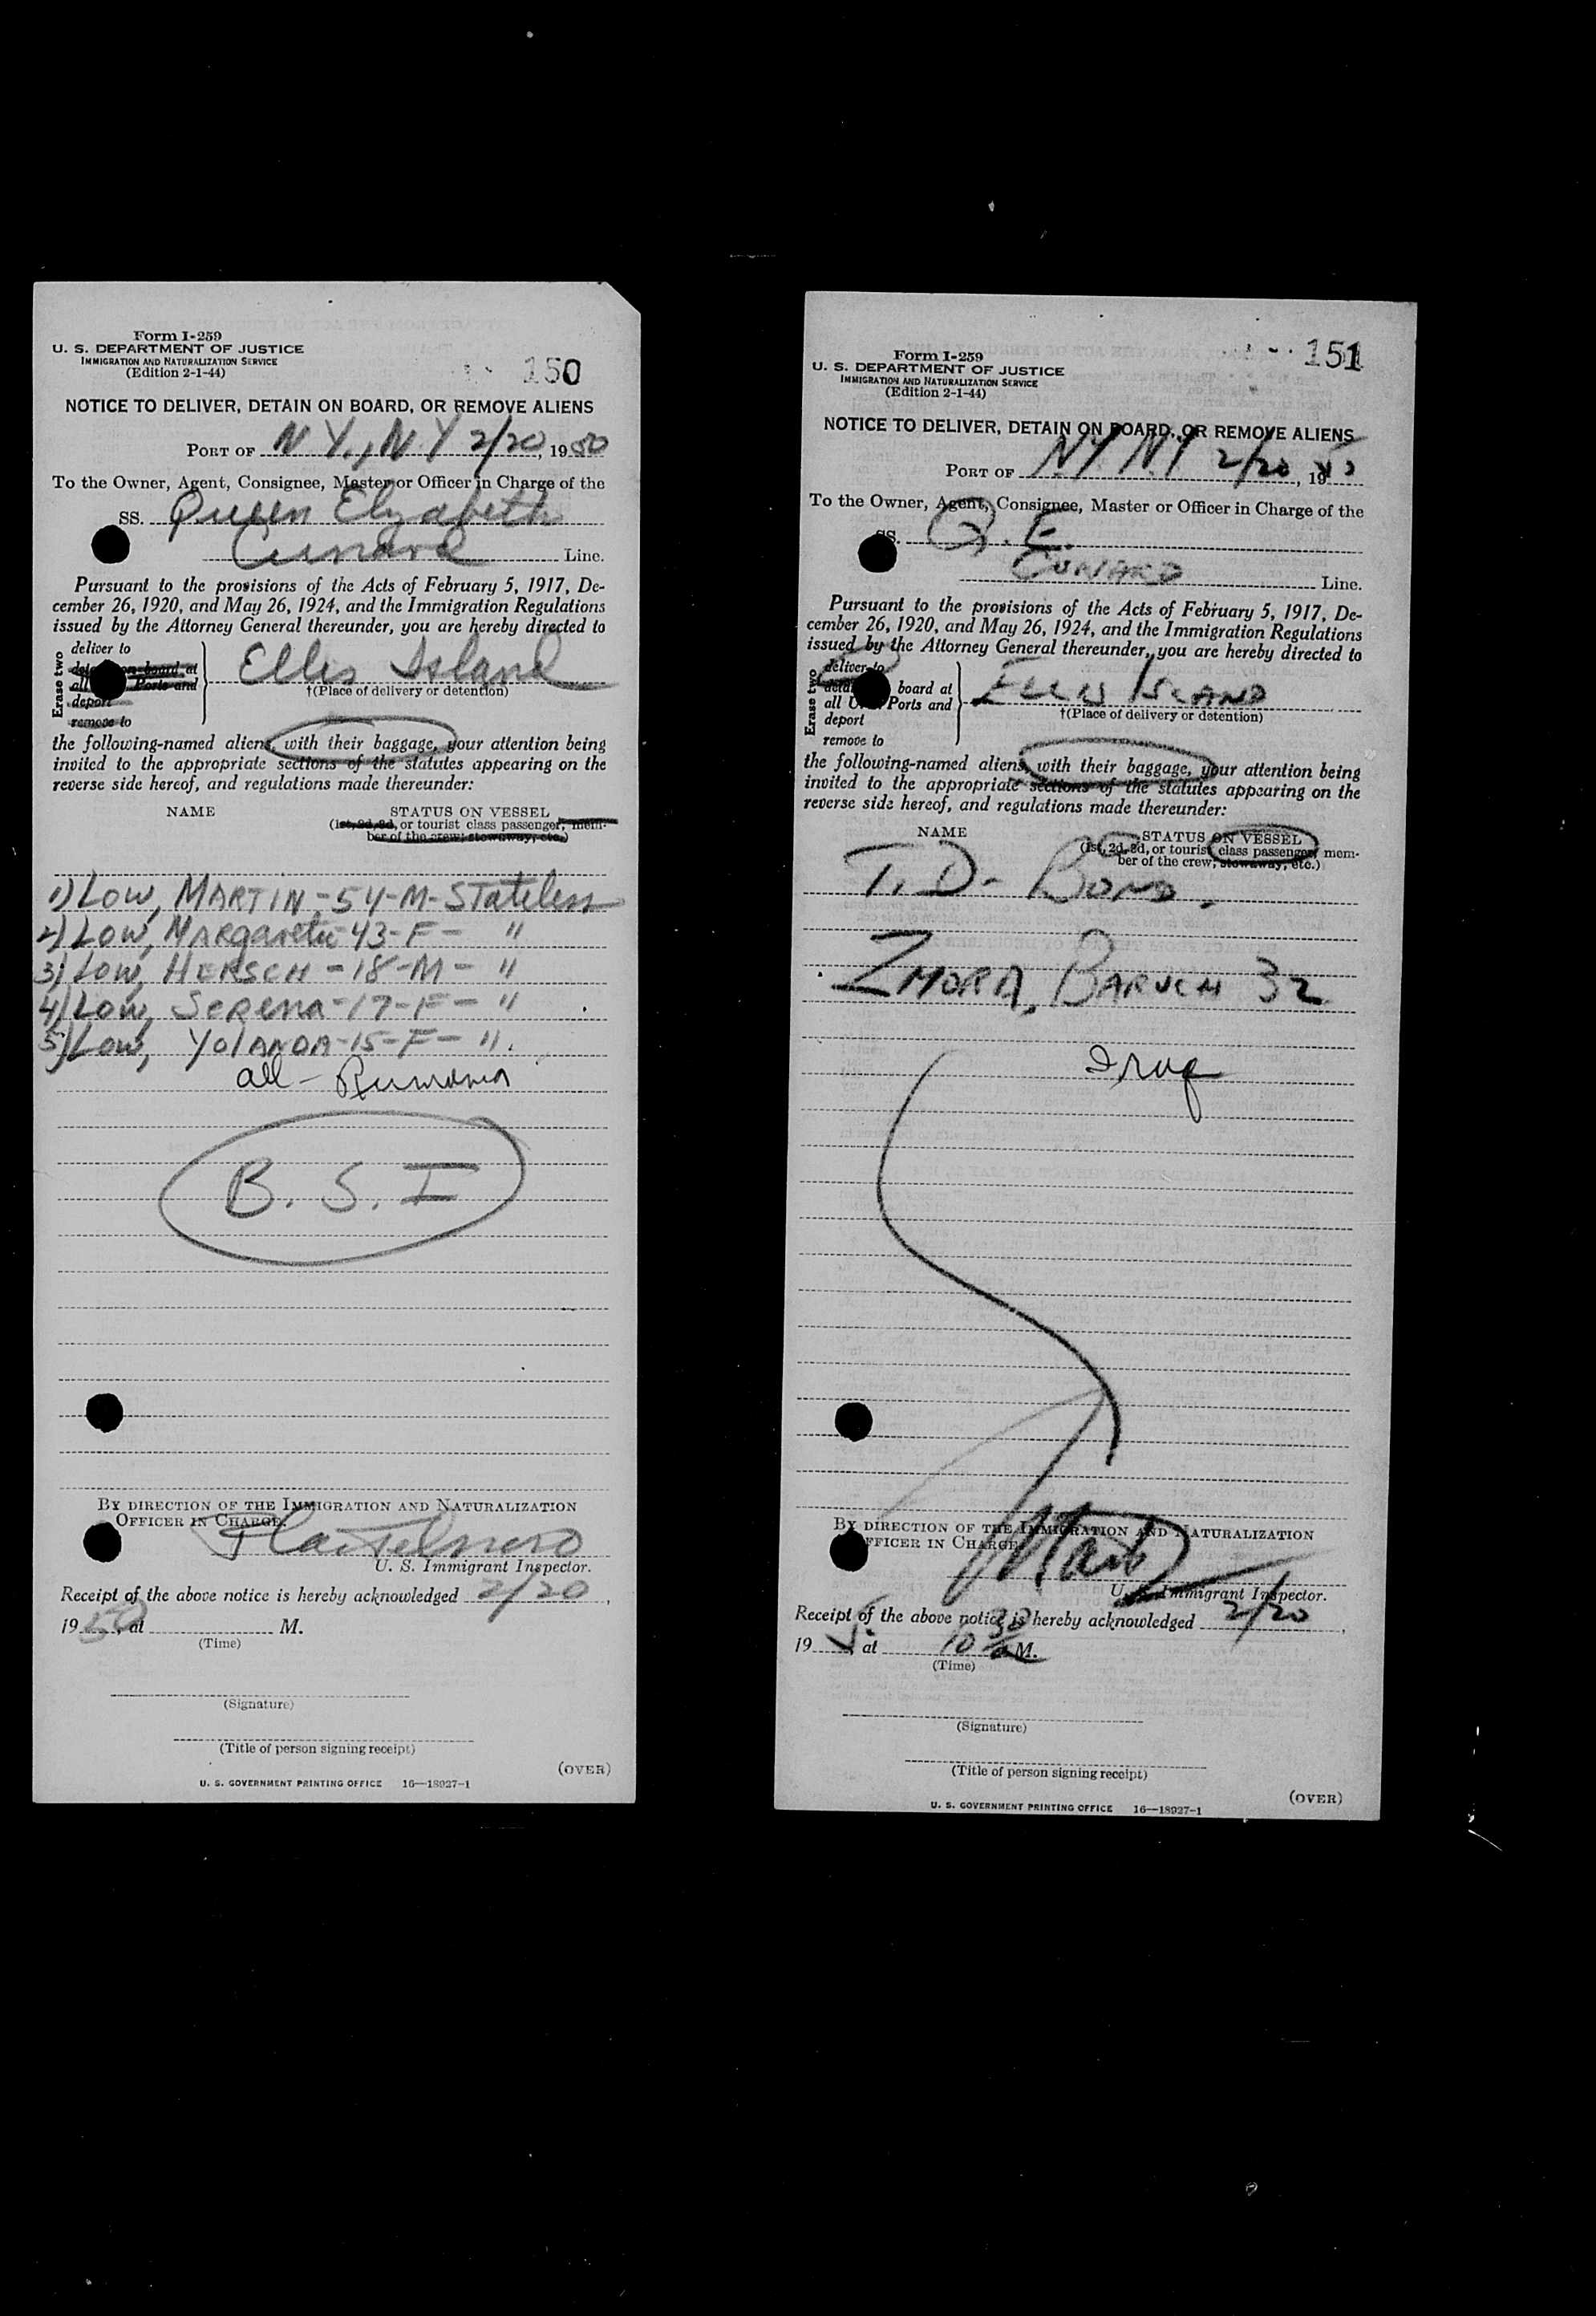 Form I-259
U. S. DEPARTMENT OF JUSTICE
IMMIGRATION AND NATURALIZATION SERVICE
(Edition 2-1-44)
150
NOTICE TO DELIVER, DETAIN ON BOARD, OR REMOVE ALIENS
PORT OF N Y., N Y 2/20, 1950
To the Owner, Agent, Consignee, Master or Officer in Charge of the
SS. Queen Elizabeth
Cunard Line.
Pursuant to the provisions of the Acts of February 5, 1917, De-
cember 26, 1920, and May 26, 1924, and the Immigration Regulations
issued by the Attorney General thereunder, you are hereby directed to
Erase two
deliver to
on board at
all Ports and
deport
remove to
Ellis Island
†(Place of delivery or detention)
the following-named aliens, with their baggage, your attention being
invited to the appropriate sections of the statutes appearing on the
reverse side hereof, and regulations made thereunder:
NAME STATUS ON VESSEL
(1st, 2d, 3d, or tourist class passenger, mem-
ber of the crew; stowaway, etc.)
1) Low, MARTIN-54-M-Stateless
2) Low, Margarete-43-F- "
3) Low, HERSCH-18-M- "
4) Low, Serena-17-F- "
5) Low, YOLANDA-15-F- ".
all - Rumania
B. S. I
BY DIRECTION OF THE IMMIGRATION AND NATURALIZATION
OFFICER IN CHARGE.
U. S. Immigrant Inspector.
Receipt of the above notice is hereby acknowledged 2/20,
1950, at M.
(Time)
(Signature)
(Title of person signing receipt)
(OVER)
U. S. GOVERNMENT PRINTING OFFICE 16—18927-1
Form I-259
U. S. DEPARTMENT OF JUSTICE
IMMIGRATION AND NATURALIZATION SERVICE
(Edition 2-1-44)
151
NOTICE TO DELIVER, DETAIN ON BOARD, OR REMOVE ALIENS
PORT OF NY NY 2/20, 19
To the Owner, Agent, Consignee, Master or Officer in Charge of the
SS. Q. E.
CUNARD Line.
Pursuant to the provisions of the Acts of February 5, 1917, De-
cember 26, 1920, and May 26, 1924, and the Immigration Regulations
issued by the Attorney General thereunder, you are hereby directed to
Erase two
deliver to
board at
all Ports and
deport
remove to
ELLIS ISLAND
†(Place of delivery or detention)
the following-named aliens, with their baggage, your attention being
invited to the appropriate sections of the statutes appearing on the
reverse side hereof, and regulations made thereunder:
NAME STATUS ON VESSEL
(1st, 2d, 3d, or tourist class passenger, mem-
ber of the crew, stowaway, etc.)
T. D- BOND.
ZMORA, BARUCH 32
Iraq
BY DIRECTION OF THE IMMIGRATION AND NATURALIZATION
OFFICER IN CHARGE
U. S. Immigrant Inspector.
Receipt of the above notice is hereby acknowledged 2/20,
19 at 10 30 a M.
(Time)
(Signature)
(Title of person signing receipt)
(OVER)
U. S. GOVERNMENT PRINTING OFFICE 16—18927-1